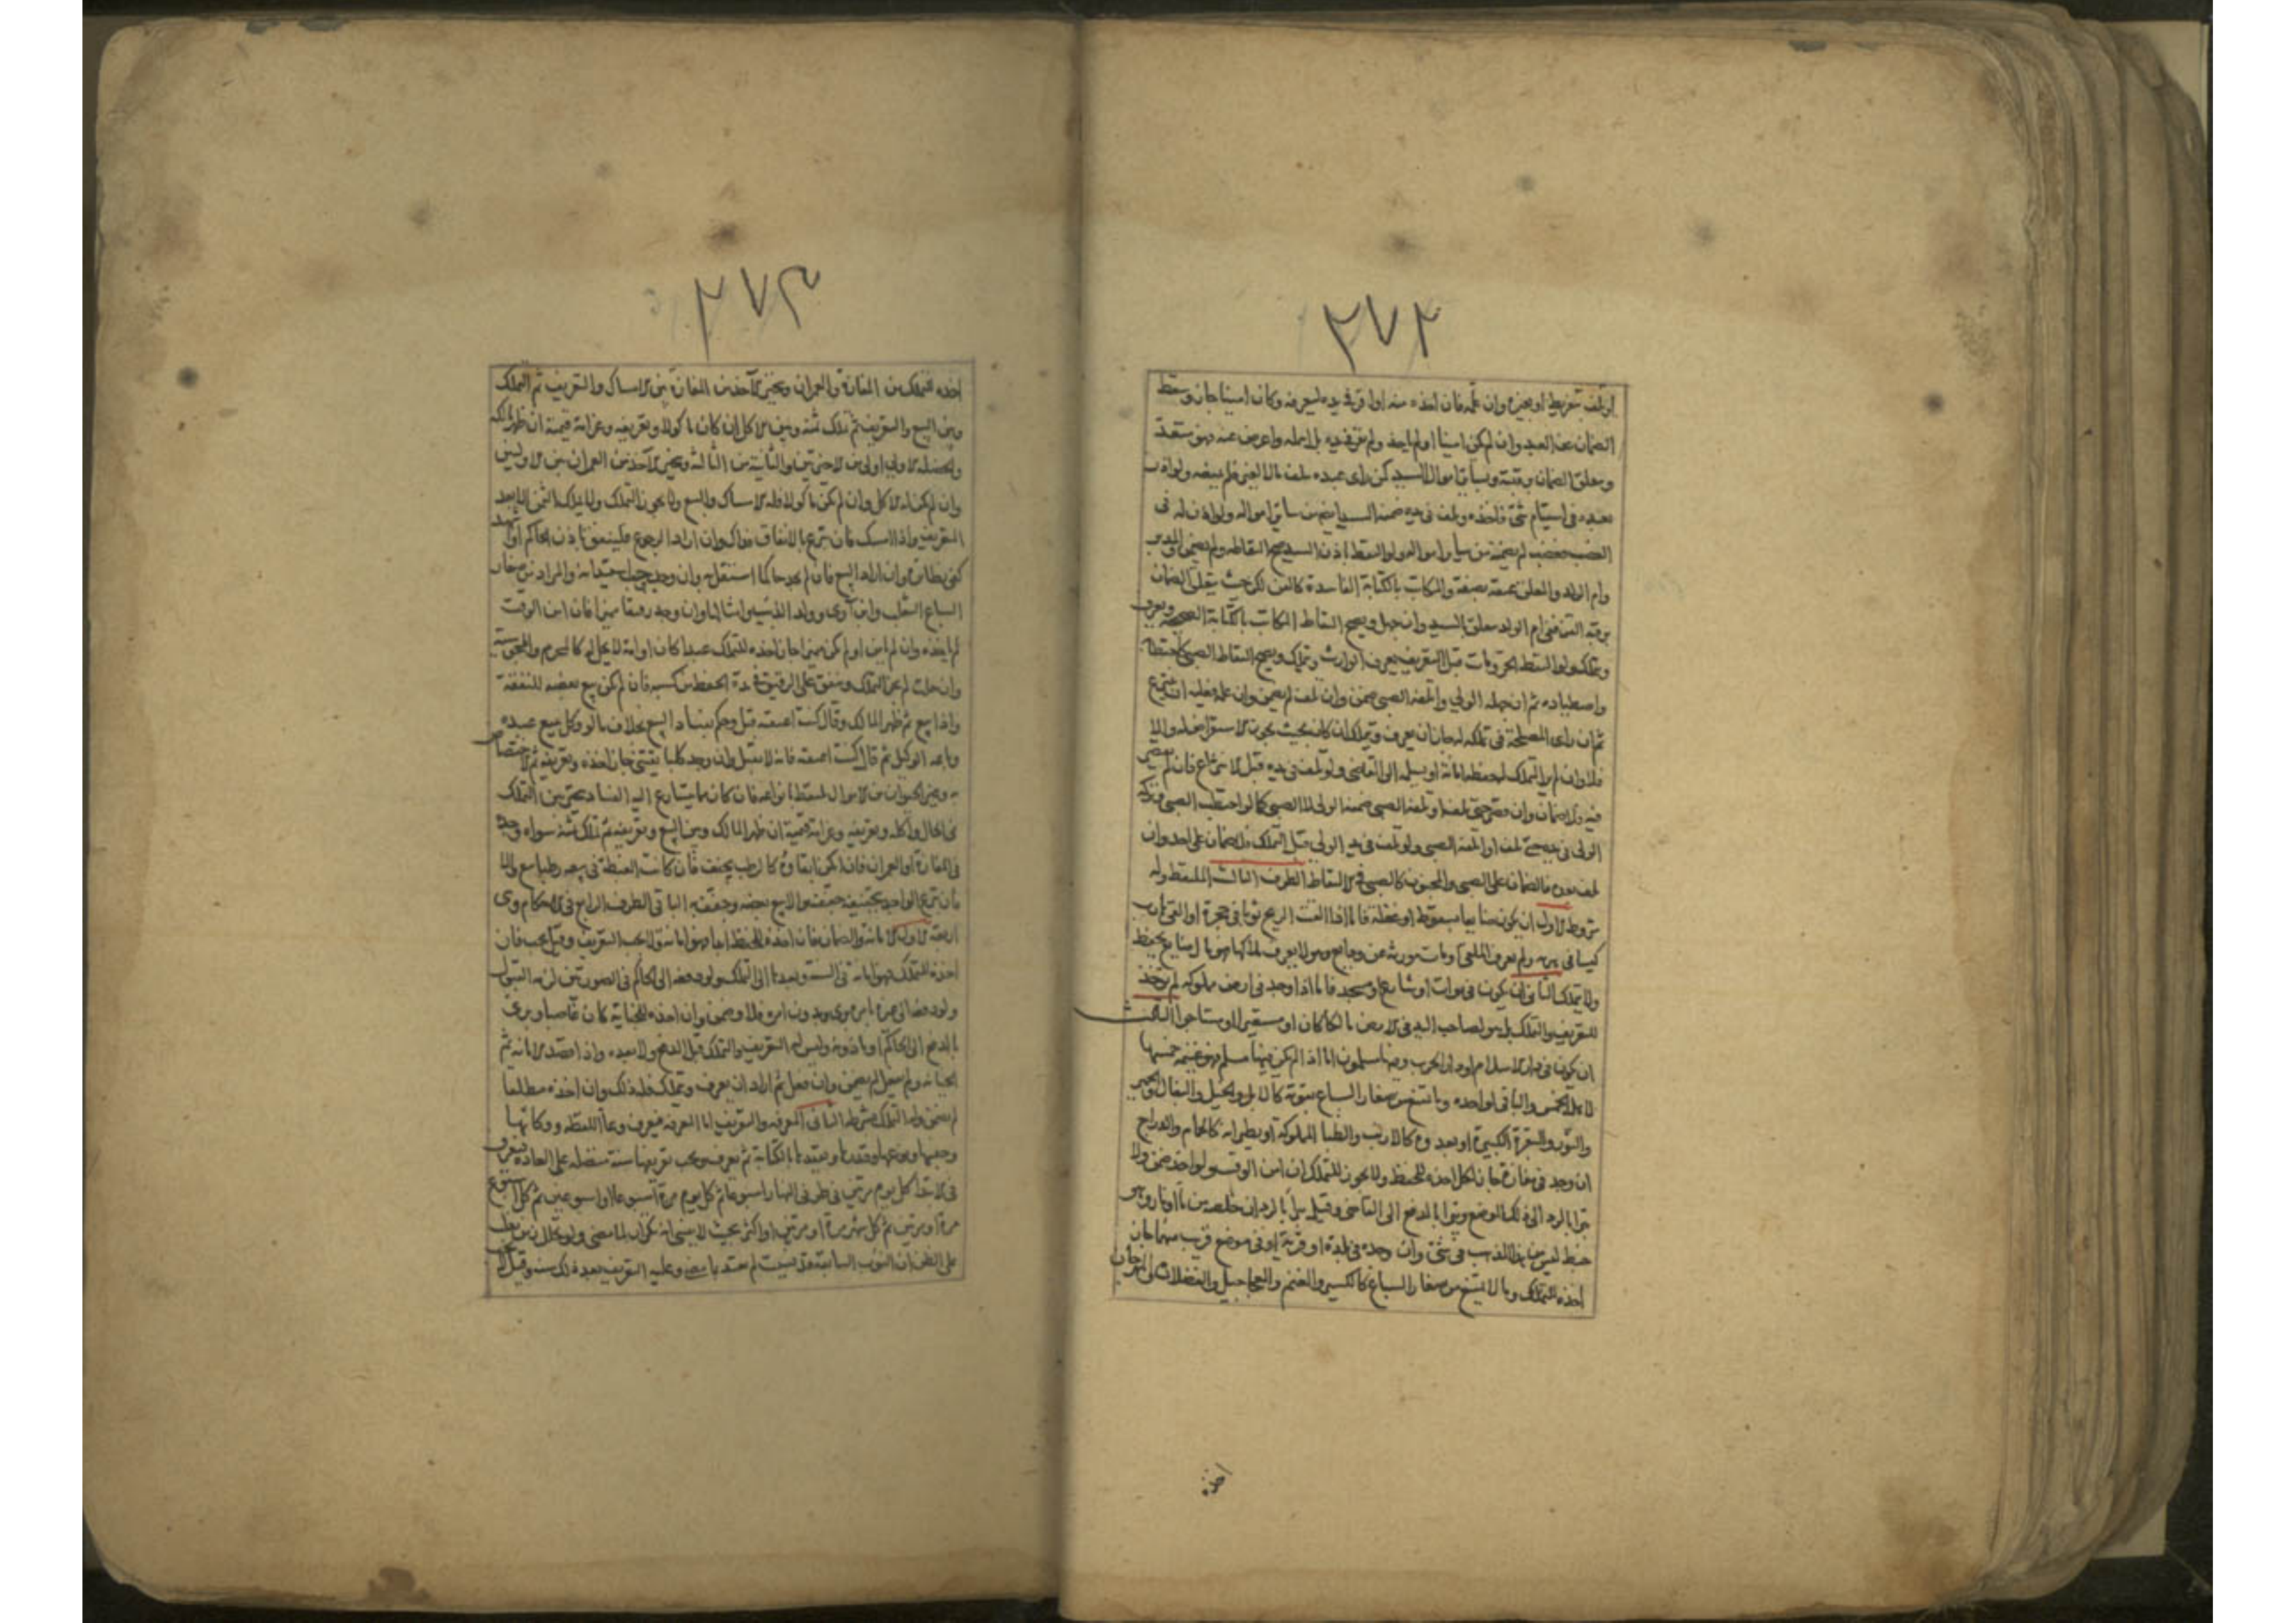 ٢٧٢
او تلف بتفريط او بغيره وان علمه فان اخذه منه او اقره في يده ليعرفه وكان امينا جاز وسقط
الضمان عن العبد وان لم يكن امينا او لم ياخذ ولم يقره في يده بل اهمله واعرض عنه فهو متعد
ويتعلق الضمان برقبته وبساير اموال السيد كمن راى عبده يتلف مالا لغيره فلم يمنعه ولو اذن
لعبده في استيام شئ فاخذه وتلف في يده ضمنه السيد ايضا من ساير امواله ولو اذن له في
الغصب فغصب لم يضمنه من ساير امواله ولو التقط باذن السيد صح التقاطه ولم يضمن والمدبر
وام الولد والمعلق عتقه بصفة والمكاتب بالكتابة الفاسدة كالقن لكن حيث يتعلق الضمان
برقبة القن ففي ام الولد يتعلق بالسيد وان جهل ويصح التقاط المكاتب بالكتابة الصحيحة ويعرف
ويتملك ولو التقط الحر ومات قبل التعريف يعرف الوارث ويتملك ويصح التقاط الصبي كاحتطابه
واصطياده ثم ان جهله الولي واتلفه الصبي ضمن وان تلف لم يضمن وان علمه فعليه ان ينتزع
ثم ان راى المصلحة في تملكه له جاز ان يعرف ويتملك ان كان بحيث يجوز الاستقراض له والا
فلا وان لم ير التملك له حفظه امانة او يسلمه الى القاضي ولو تلف في يده قبل الانتزاع فان لم يقصر
فيه فلا ضمان وان قصر حتى تلف او اتلفه الصبي ضمنه الولي لا الصبي كما لو احتطب الصبي وتركه
الولي في يده حتى تلف او اتلفه الصبي ولو تلف في يد الولي قبل التملك فلا ضمان على احد وان
تلف بعده فالضمان على الصبي والمجنون كالصبي في الالتقاط الطرف الثالث الملتقط وله
شروط الاول ان يكون ضايعا بسقوط او غفلة فاما اذا القت الريح ثوبا في حجره او القى هارب
كيسا في حجره ولم يعرف الملقي او مات مورثه عن ودايع وهو لا يعرف ملاكها فهو مال ضايع يحفظ
ولا يتملك الثاني ان يكون في موات او شارع او مسجد فاما اذا وجد في ارض مملوكة لم يوخذ
للتعريف والتملك بل هو لصاحب اليد في الارض مالكا كان او مستعيرا او مستاجرا الثالث
ان يكون في دار الاسلام او دار الحرب وفيها مسلمون اما اذا لم يكن فيها مسلم فهو غنيمة خمسها
لاهل الخمس والباقي لواجده وما يمتنع من صغار السباع بقوته كالابل والخيل والبغال والحمير
والثور والبقرة الكبيرة او بعدوه كالارنب والظبا المملوكة او بطيرانه كالحمام والدراج
ان وجد في مفازة جاز لكل اخذه للحفظ ولا يجوز للتملك ان امن الوقت ولو اخذ ضمن ولا
يبرا بالرد الى ذلك الموضع ويبرا بالدفع الى القاضي وقيل يبرا بالرد
خبط ليس من المذهب في شئ وان وجده في بلدة او قرية او في موضع قريب منهما جاز
اخذه للتملك وما لا يمتنع من صغار السباع كالكسير والغنم والعجاجيل والفصلان
اخذه
٢٧٣
اخذه للتملك من المفازة والعمران ويتخير الآخذ من المفازة بين الامساك والتعريف ثم التملك
وبين البيع والتعريف ثم تملك ثمنه وبين الاكل ان كان ماكولا وتعريفه وغرامة قيمته ان ظهر مالكه
والخصلة الاولى اولى من الاخرتين والثانية من الثالثة ويتخير الآخذ من العمران بين الاوليين
وان لم يكن له الاكل وان لم يكن ماكولا فله الامساك والبيع ولا يجوز التملك ولا تملك الثمن الا بعد
التعريف واذا امسك فان تبرع بالانفاق فذاك وان اراد الرجوع فلينفق باذن الحاكم
وان اراد البيع فان لم يجد حاكما استقل به وان وجد وجب استيذانه والمراد من صغار
السباع الثعلب وابن آوى وولد الذئب وامثالها وان وجد رقيقا مميزا فان امن الوقت
لم ياخذه وان لم يامن او لم يكن مميزا جاز اخذه للتملك عبدا كان او امة لا يحل له كالمحرم والمجوسية
وان حلت لم يجز التملك وينفق على الرقيق في مدة الحفظ من كسبه فان لم يكن بيع بعضه للنفقة
واذا بيع ثم ظهر المالك وقال كنت اعتقته قبل وحكم بفساد البيع بخلاف ما لو وكل ببيع عبده
وباعه الوكيل ثم قال كنت اعتقته فانه لا يقبل وان وجد كلبا يقتنى جاز اخذه وتعريفه ثم الاختصاص
به وغير الحيوان من الاموال يلتقط بانواعه فان كان مما يتسارع اليه الفساد يخير بين التملك
في الحال واكله وتعريفه وغرامة قيمته ان ظهر المالك وبين البيع وتعريفه ثم تملك ثمنه سواء وجد
في المفازة او العمران فان امكن ابقاوه كالرطب يجفف فان كانت الغبطة في بيعه رطبا بيع والا
فان تبرع الواجد بتجفيفه جففه والا بيع بعضه وجفف به الباقي الطرف الرابع في الاحكام وهي
اربعة الاول الامانة والضمان فان اخذه للحفظ ابدا فهو امانة ولا يجب التعريف وقيل يجب فان
اخذه للتملك فهو امانة في السنة وبعدها الى التملك ولو دفعه الى الحاكم في الصورتين لزمه القبول
ولو دفعه الى غيره بامره برئ وبدون امره فلا وضمن وان اخذه للخيانة كان غاصبا وبرئ
بالدفع الى الحاكم او ماذونه وليس له التعريف والتملك قبل الدفع ولا بعده واذا قصد الامانة ثم
الخيانة ولم يستعمل لم يضمن وان فعل ثم اراد ان يعرف ويتملك فله ذلك وان اخذه مطلقا
لم يضمن وله التملك بشرطه الثاني المعرفة والتعريف اما المعرفة فيعرف وعاء اللقطة ووكاءها
وجنسها ونوعها وقدرها ويقيدها بالكتابة ثم يعرف ويجب تعريفها سنة متصلة على العادة فيعرف
في الابتدا كل يوم مرتين في طرفي النهار اسبوعا ثم كل يوم مرة اسبوعا او اسبوعين ثم كل اسبوع
مرة او مرتين ثم كل شهر مرة او مرتين او اكثر بحيث لا ينسى انه تكرار لما مضى ولو تخللا زمن يغلب
على الظن ان النوب السابقة قد نسيت لم يعتد بما مضى وعليه التعريف بعد ذلك سنة وقيل